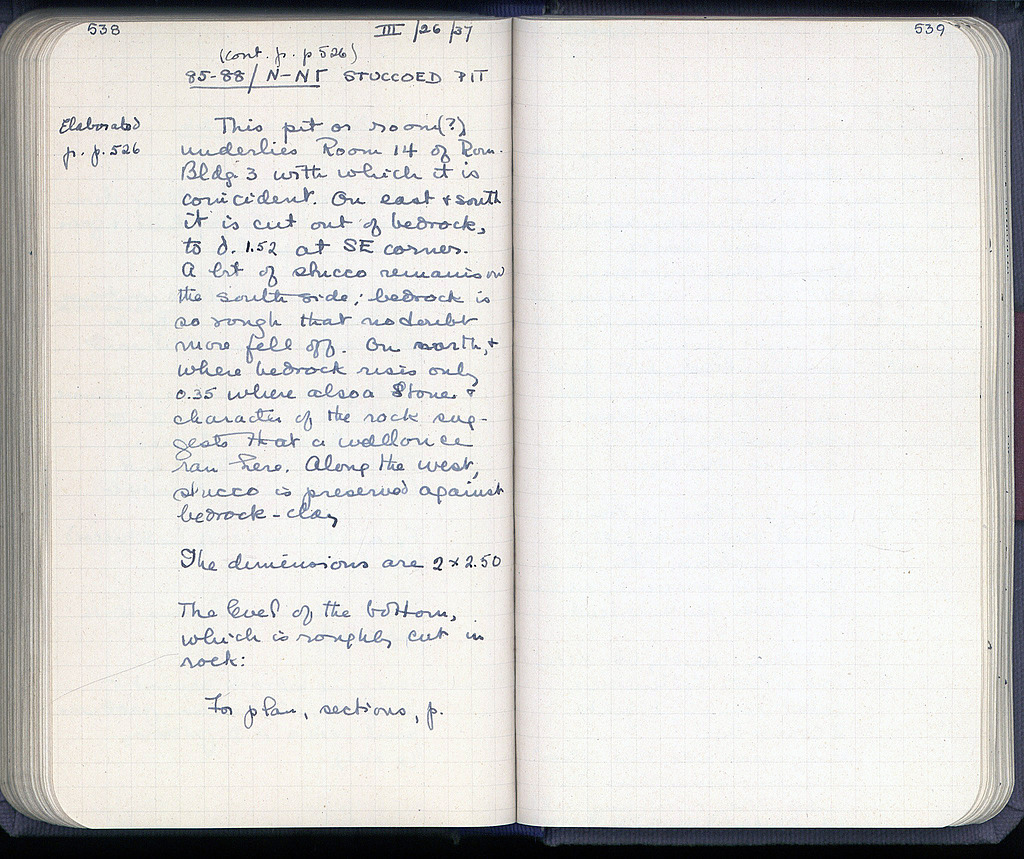 538
III /26 /37
(cont. fr. p 526)
85-88/ N-NΓ STUCCOED PIT
Elaborated
fr. p. 526
This pit or room(?)
underlies Room 14 of Rom.
Bldg 3 with which it is
coincident. On east + south
it is cut out of bedrock,
to d. 1.52 at SE corner.
A bit of stucco remains on
the south side; bedrock is
so rough that no doubt
more fell off. On north, +
where bedrock rises only
0.35 where also a stone +
character of the rock sug-
gests that a wall once
ran here. Along the west,
stucco is preserved against
bedrock-clay
The dimensions are 2 x 2.50
The level of the bottom,
which is roughly cut in
rock:
For plan, sections, p.
539